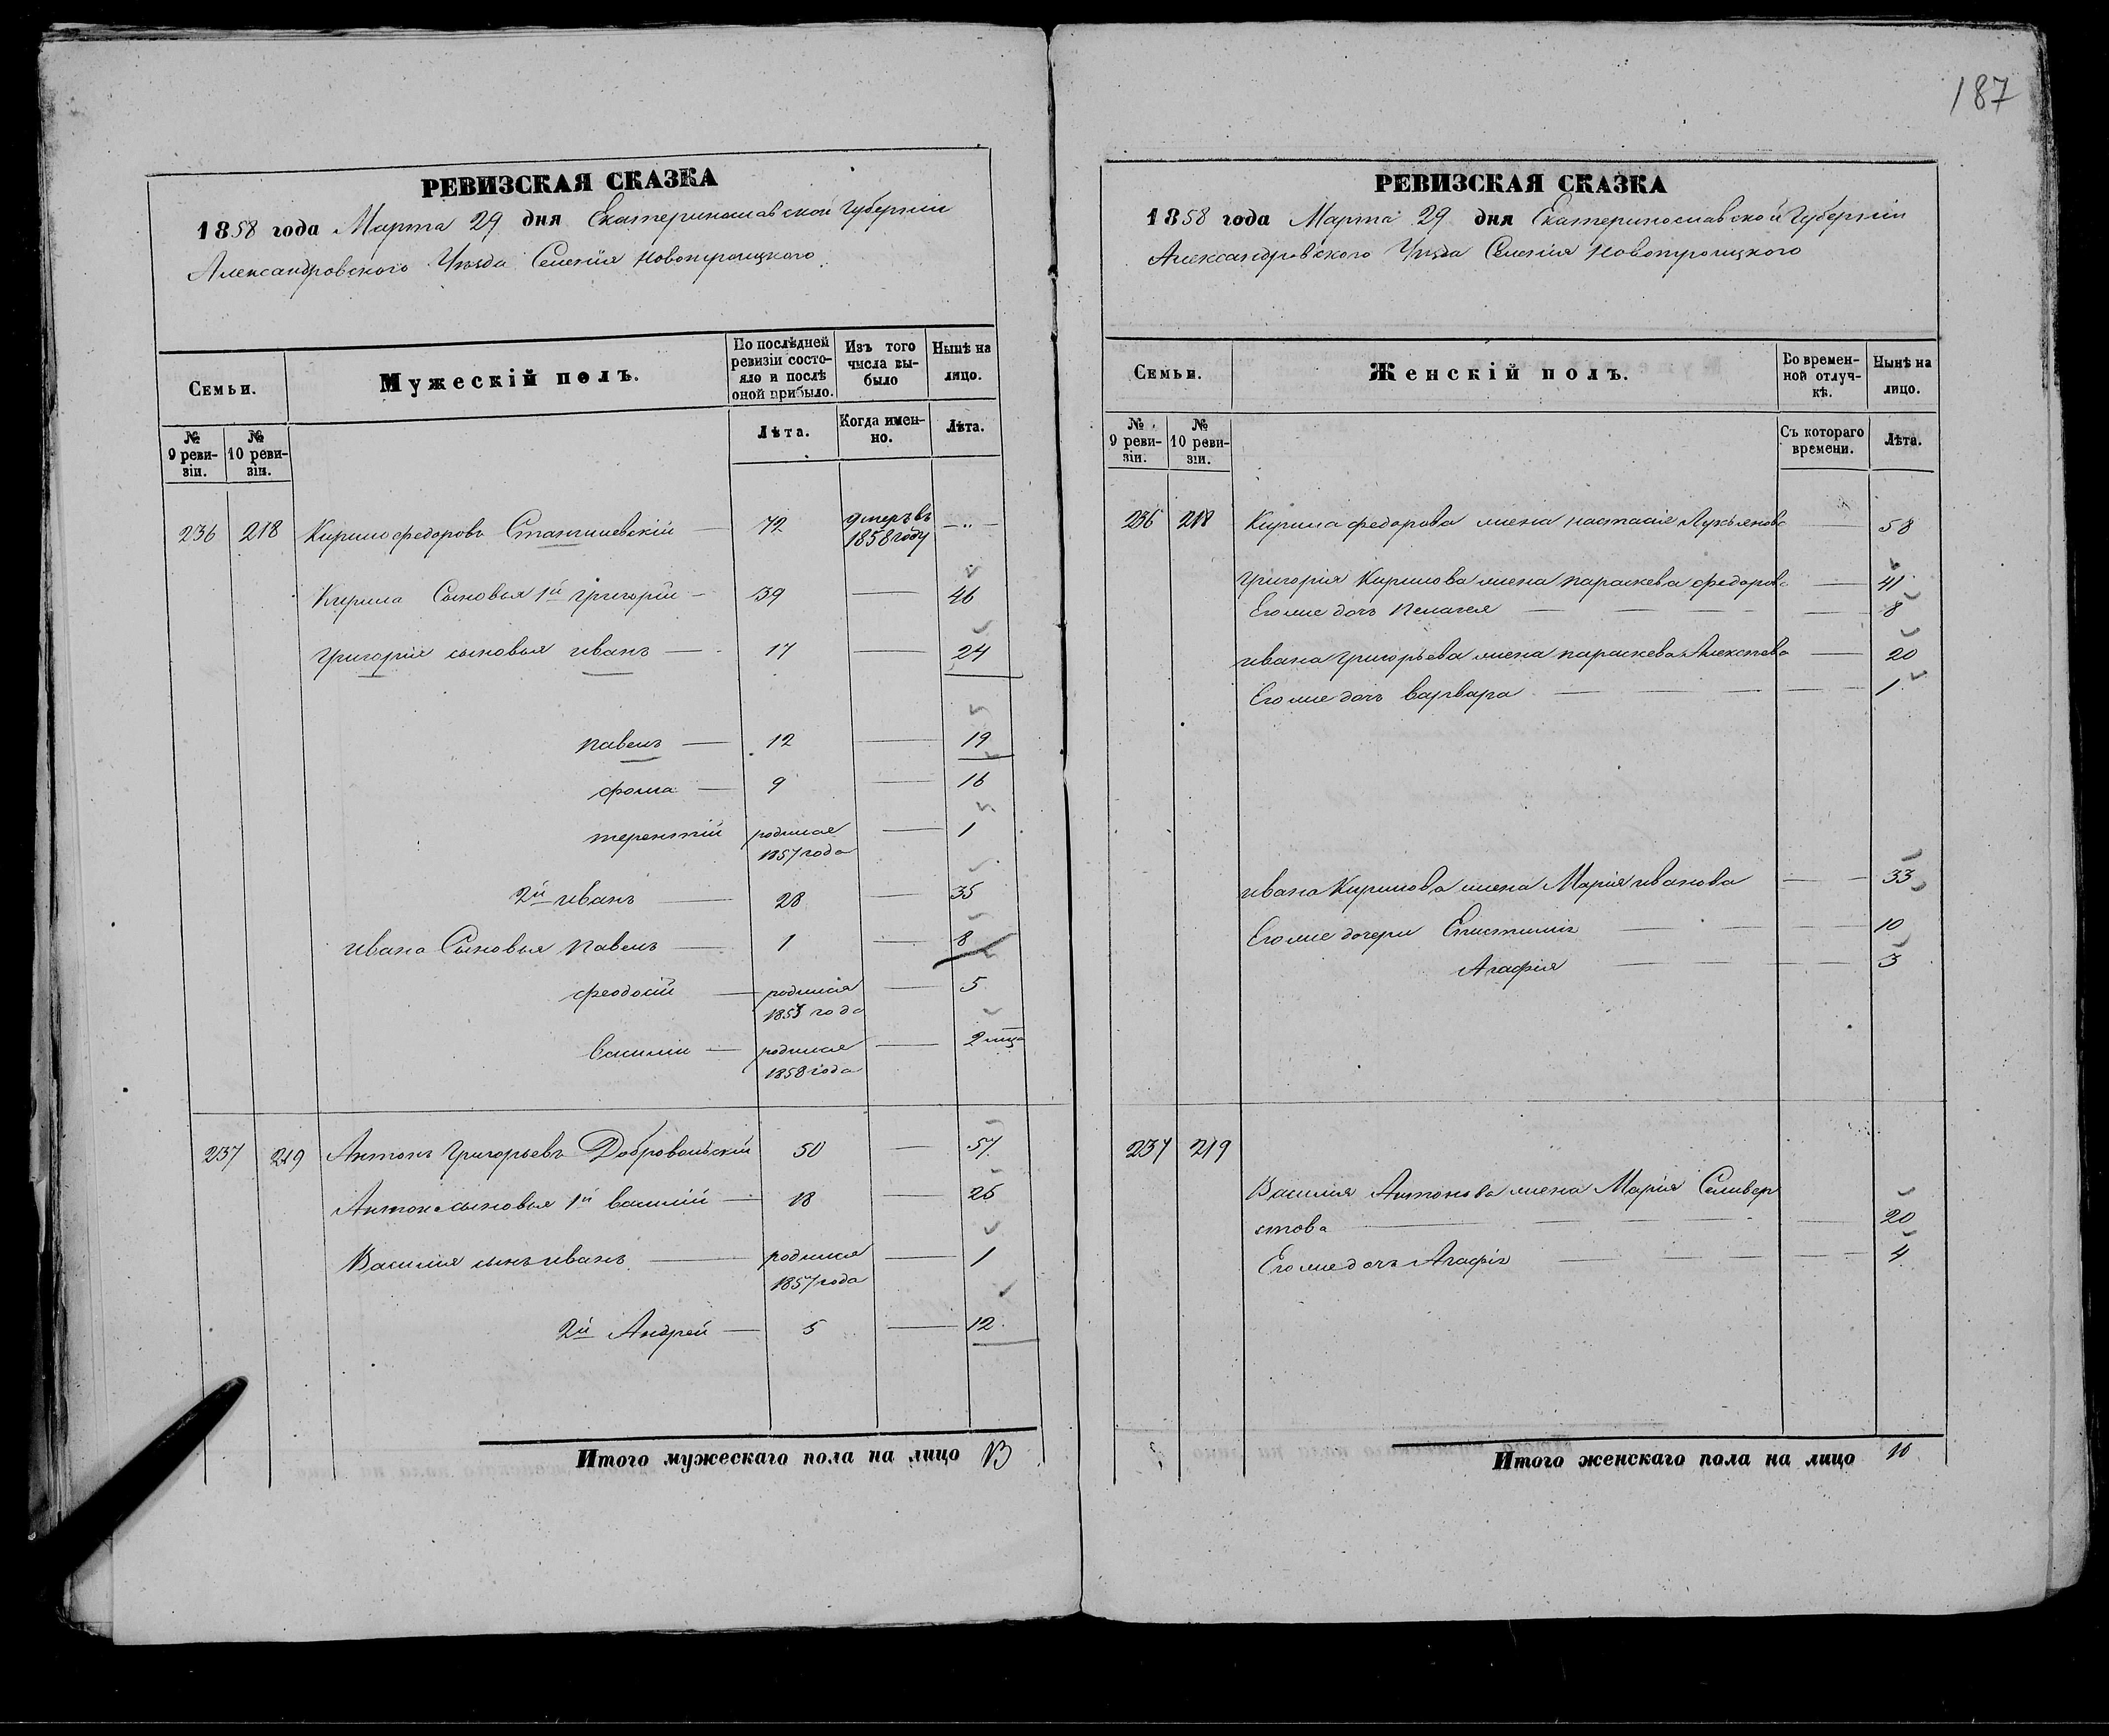 187
РЕВИЗСКАЯ СКАЗКА
1858 года Марта 29 дня Екатеринославской Губерніи
Александровского Уѣзда Селенія Новотроицкого
Семьи.
Мужескій полъ.
По послѣдней ревизіи состояло и послѣ оной прибыло.
Изъ того числа выбыло
Нынѣ на лицо.
№ 9 ревизіи.
№ 10 ревизіи.
Лѣта.
Когда именно.
Лѣта.
236 218 Кирило Федоровъ 72 умеръ въ 1858 году — „ —
Кирила Сыновья 1й Григорій — 39 — 46
Григорія сыновья иванъ — 17 — 24
павелъ — 12 — 19
фома — 9 — 16
терентій родился 1857 года — 1
2й иванъ — 28 — 35
ивана Сыновья павелъ — 1 — 8
феодосій — родился 1853 года — 5
василій — родился 1858 года — 2 мца
237 219 Антонъ Григорьевъ Добровольскій 50 — 57
Антона сыновья 1й василій — 18 — 25
Василия сынъ иванъ — родился 1857 года — 1
2й Андрей — 5 — 12
Итого мужескаго пола на лицо 13
РЕВИЗСКАЯ СКАЗКА
1858 года Марта 29 дня Екатеринославской Губерніи
Александровского Уѣзда Селенія Новотроицкого
Семьи.
Женскій полъ.
Во временной отлучкѣ.
Нынѣ на лицо.
№ 9 ревизіи.
№ 10 ревизіи.
Съ котораго времени.
Лѣта.
236 218 Кирила федорова жена настасія Лукъянова — 58
Григорія Кирилова жена параскева федорова — 41
Его же дочь Пелагея — — — — 8
ивана Григорьева жена параскева Алексѣева — 20
Его же дочь варвара — — — — 1
ивана Кирилова жена Марія иванова — — 33
Его же дочери Епистимія — — — — 10
Агафія — — — — 3
237 219
Василия Антонова жена Марія Селивер
стова — — — — 20
Его же дочь Агафія — — — — 4
Итого женскаго пола на лицо 10